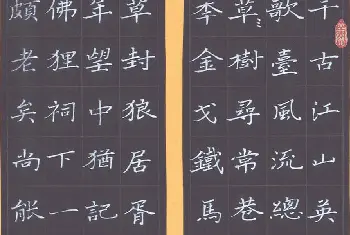 千古江山英
歌臺風流總
草〻樹尋常巷
秊金戈鐵馬
草封狼居胥
年望中猶記
佛狸祠下一
頗老矣尚能